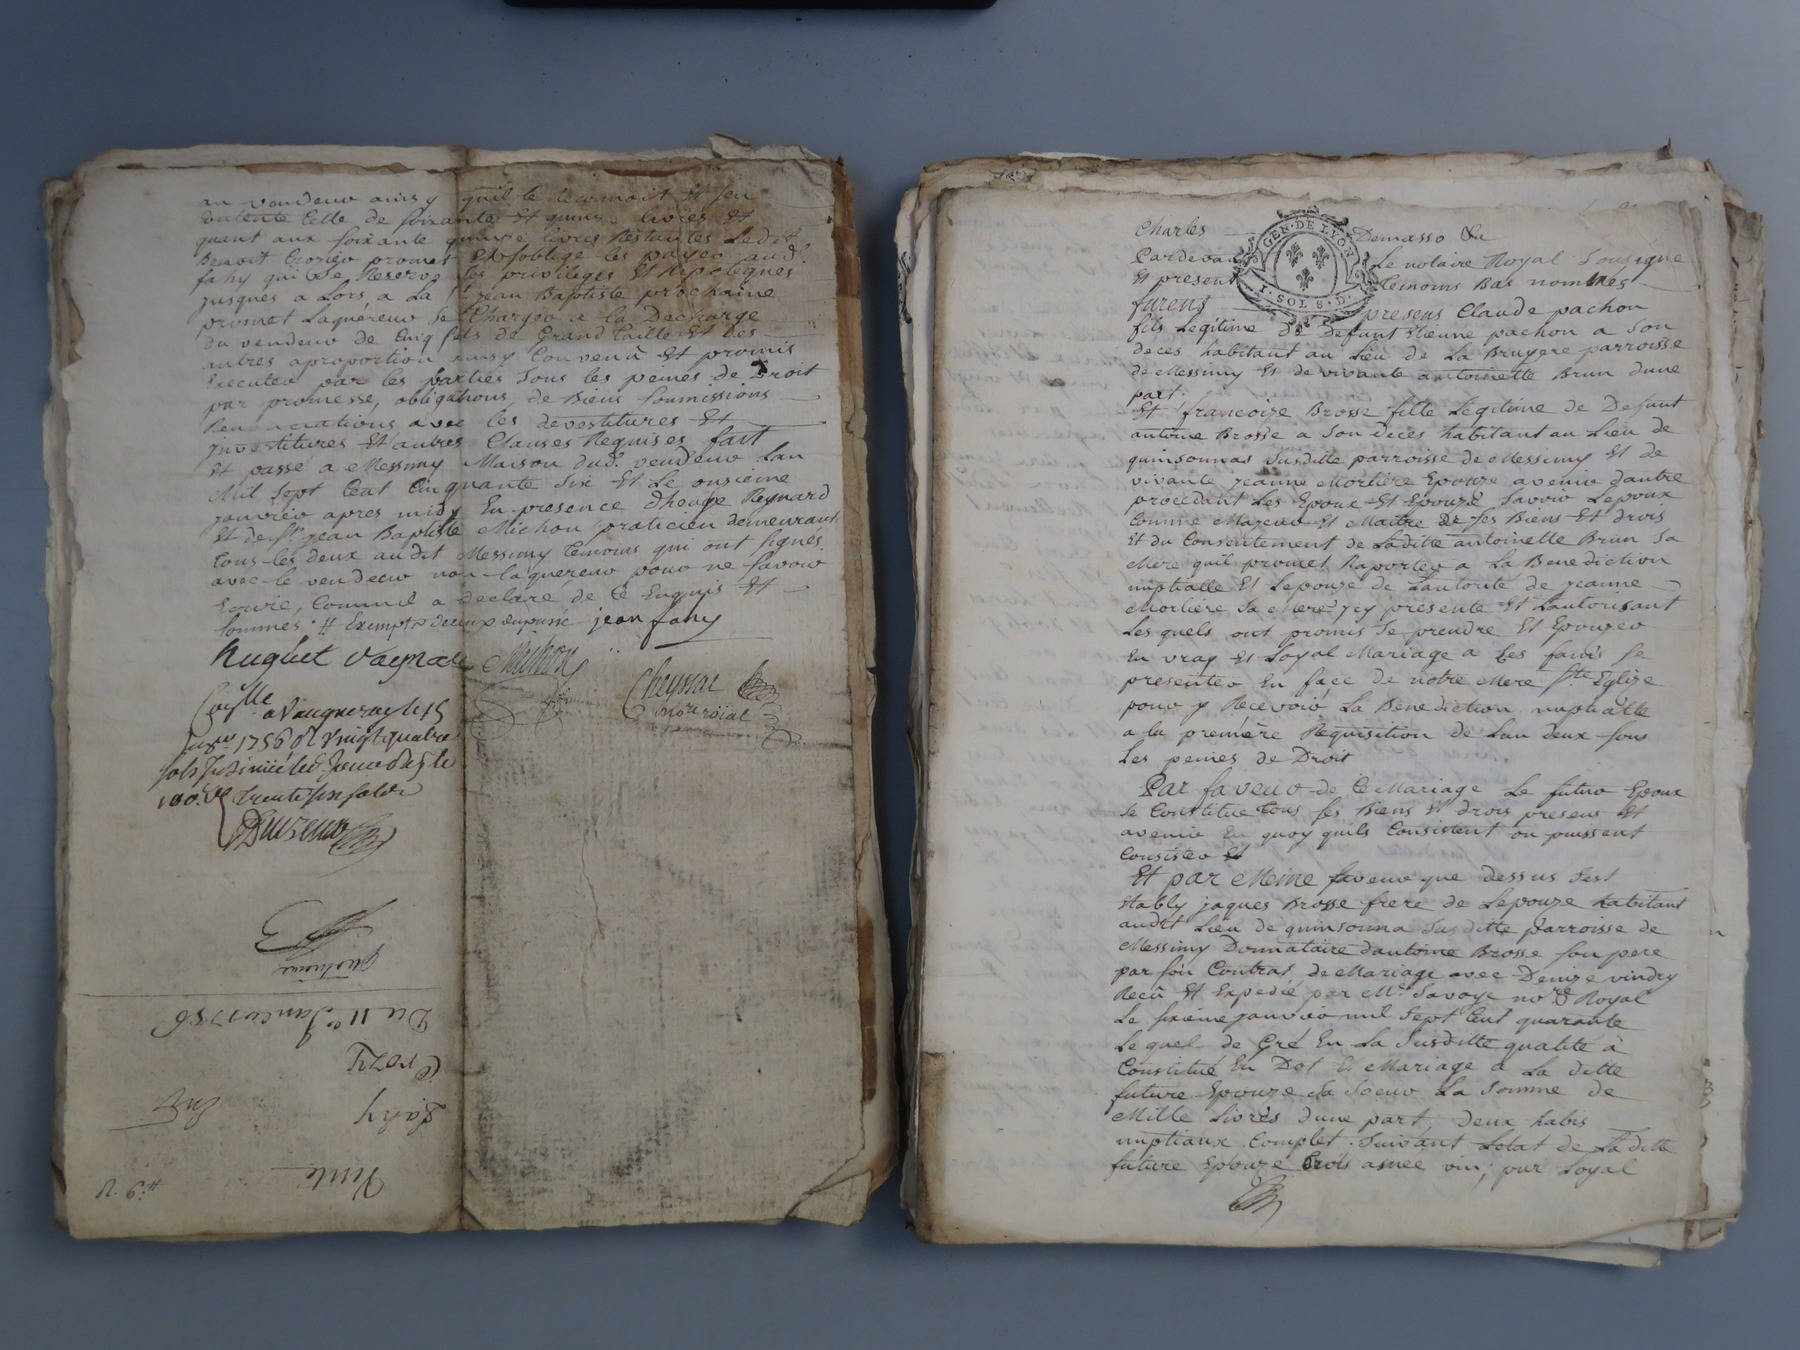 au vendeur ainsy quil le reconnoit Et sen
contente Celle de soixante Et quinze livres Et
quant aux soixante quinze livres Restantes Ledit
Benoit Crozier promet Et soblige les payer aud.
fahy qui se Reserve les privileges Et hipoteques
jusques a Lors, a La St. jean Baptiste prochaine
promet Laquereur se Charger a la Decharge
du vendeur de Cinq sols de Grand Taille Et des
autres aproportion ainsy Convenu Et promis
Executer par les parties sous les peines de Droit
par promesse, obligations, de Biens soumissions
Renonciations avec les devestitures Et
jnvestitures Et autres Clauses Requises fait
Et passé a Messimy Maison dud. vendeur Lan
Mil sept Cent Cinquante six Et Le onzieme
janvier apres midy En presence dhouge Reynard
Et de Sr. jean Baptiste Michon praticien demeurant
tous les deux audit Messimy temoins qui ont signés
avec le vendeur non laquereur pour ne savoir
Ecrire, Comme il a declaré de Ce Enquis Et
sommés. jean fahy
huguet Michon
Cheyssac
no.re roial
a Vaugneray le 15
1756 vingt quatre
sols
100.
trente six sols
Du 11e. Janvr. 1756
Crozy
fahy
Vente
Charles Demasso &a
Pardevant Le notaire Royal sousigné
Et presens temoins Bas nommés
furent presens Claude pachon
fils Legitime de Defunt Etienne pachon a son
deces habitant au Lieu de La Bruyere parroisse
de Messimy Et de vivante antoinette Brun dune
part.
Et francoise Brosse fille Legitime de Defunt
antoine Brosse a son deces habitant au Lieu de
quinsonnas susditte parroisse de Messimy Et de
vivante jeanne Morliere Epouze avenir dautre
procedant Les Epoux Et Epouze savoir Lepoux
Comme Majeur Et Maitre de ses Biens Et drois
Et du Consentement de Laditte antoinette Brun sa
Mere quil promet Raporter a La Benediction
nuptialle Et Lepouze de Lautorité de jeanne
Morliere sa Mere jcy presente Et Lautorisant
Les quels ont promis se prendre Et Epouzer
En vray Et Loyal Mariage a Ces fains se
presenter En face de notre Mere Ste. Eglize
pour y Recevoir La Benediction nuptialle
a la premiere Requisition de Lun deux sous
Les peines de Droit
Par faveur de Ce Mariage Le futur Epoux
se Constitue tous ses Biens Et drois presens Et
avenir En quoy quils Consistent ou puissent
Consister Et
Et par Meme faveur que dessus sest
Etably jaques Brosse frere de Lepouze habitant
audit Lieu de quinsonna susditte parroisse de
Messimy Donnataire dantoine Brosse son pere
par son Contrat de Mariage avec Denize vindry
Recû Et Expedié par Me. Savoye no.re Royal
Le sixieme janvier mil sept Cent quarante
Le quel de Gré En La susditte qualité à
Constitué En Dot Et Mariage a La ditte
future Epouze sa soeur La somme de
Mille Livres dune part, deux habis
nuptiaux Complet suivant Letat de La ditte
future Epouze trois asnee vin, pur Loyal
GEN. DE LYON
I. SOL 8. D.